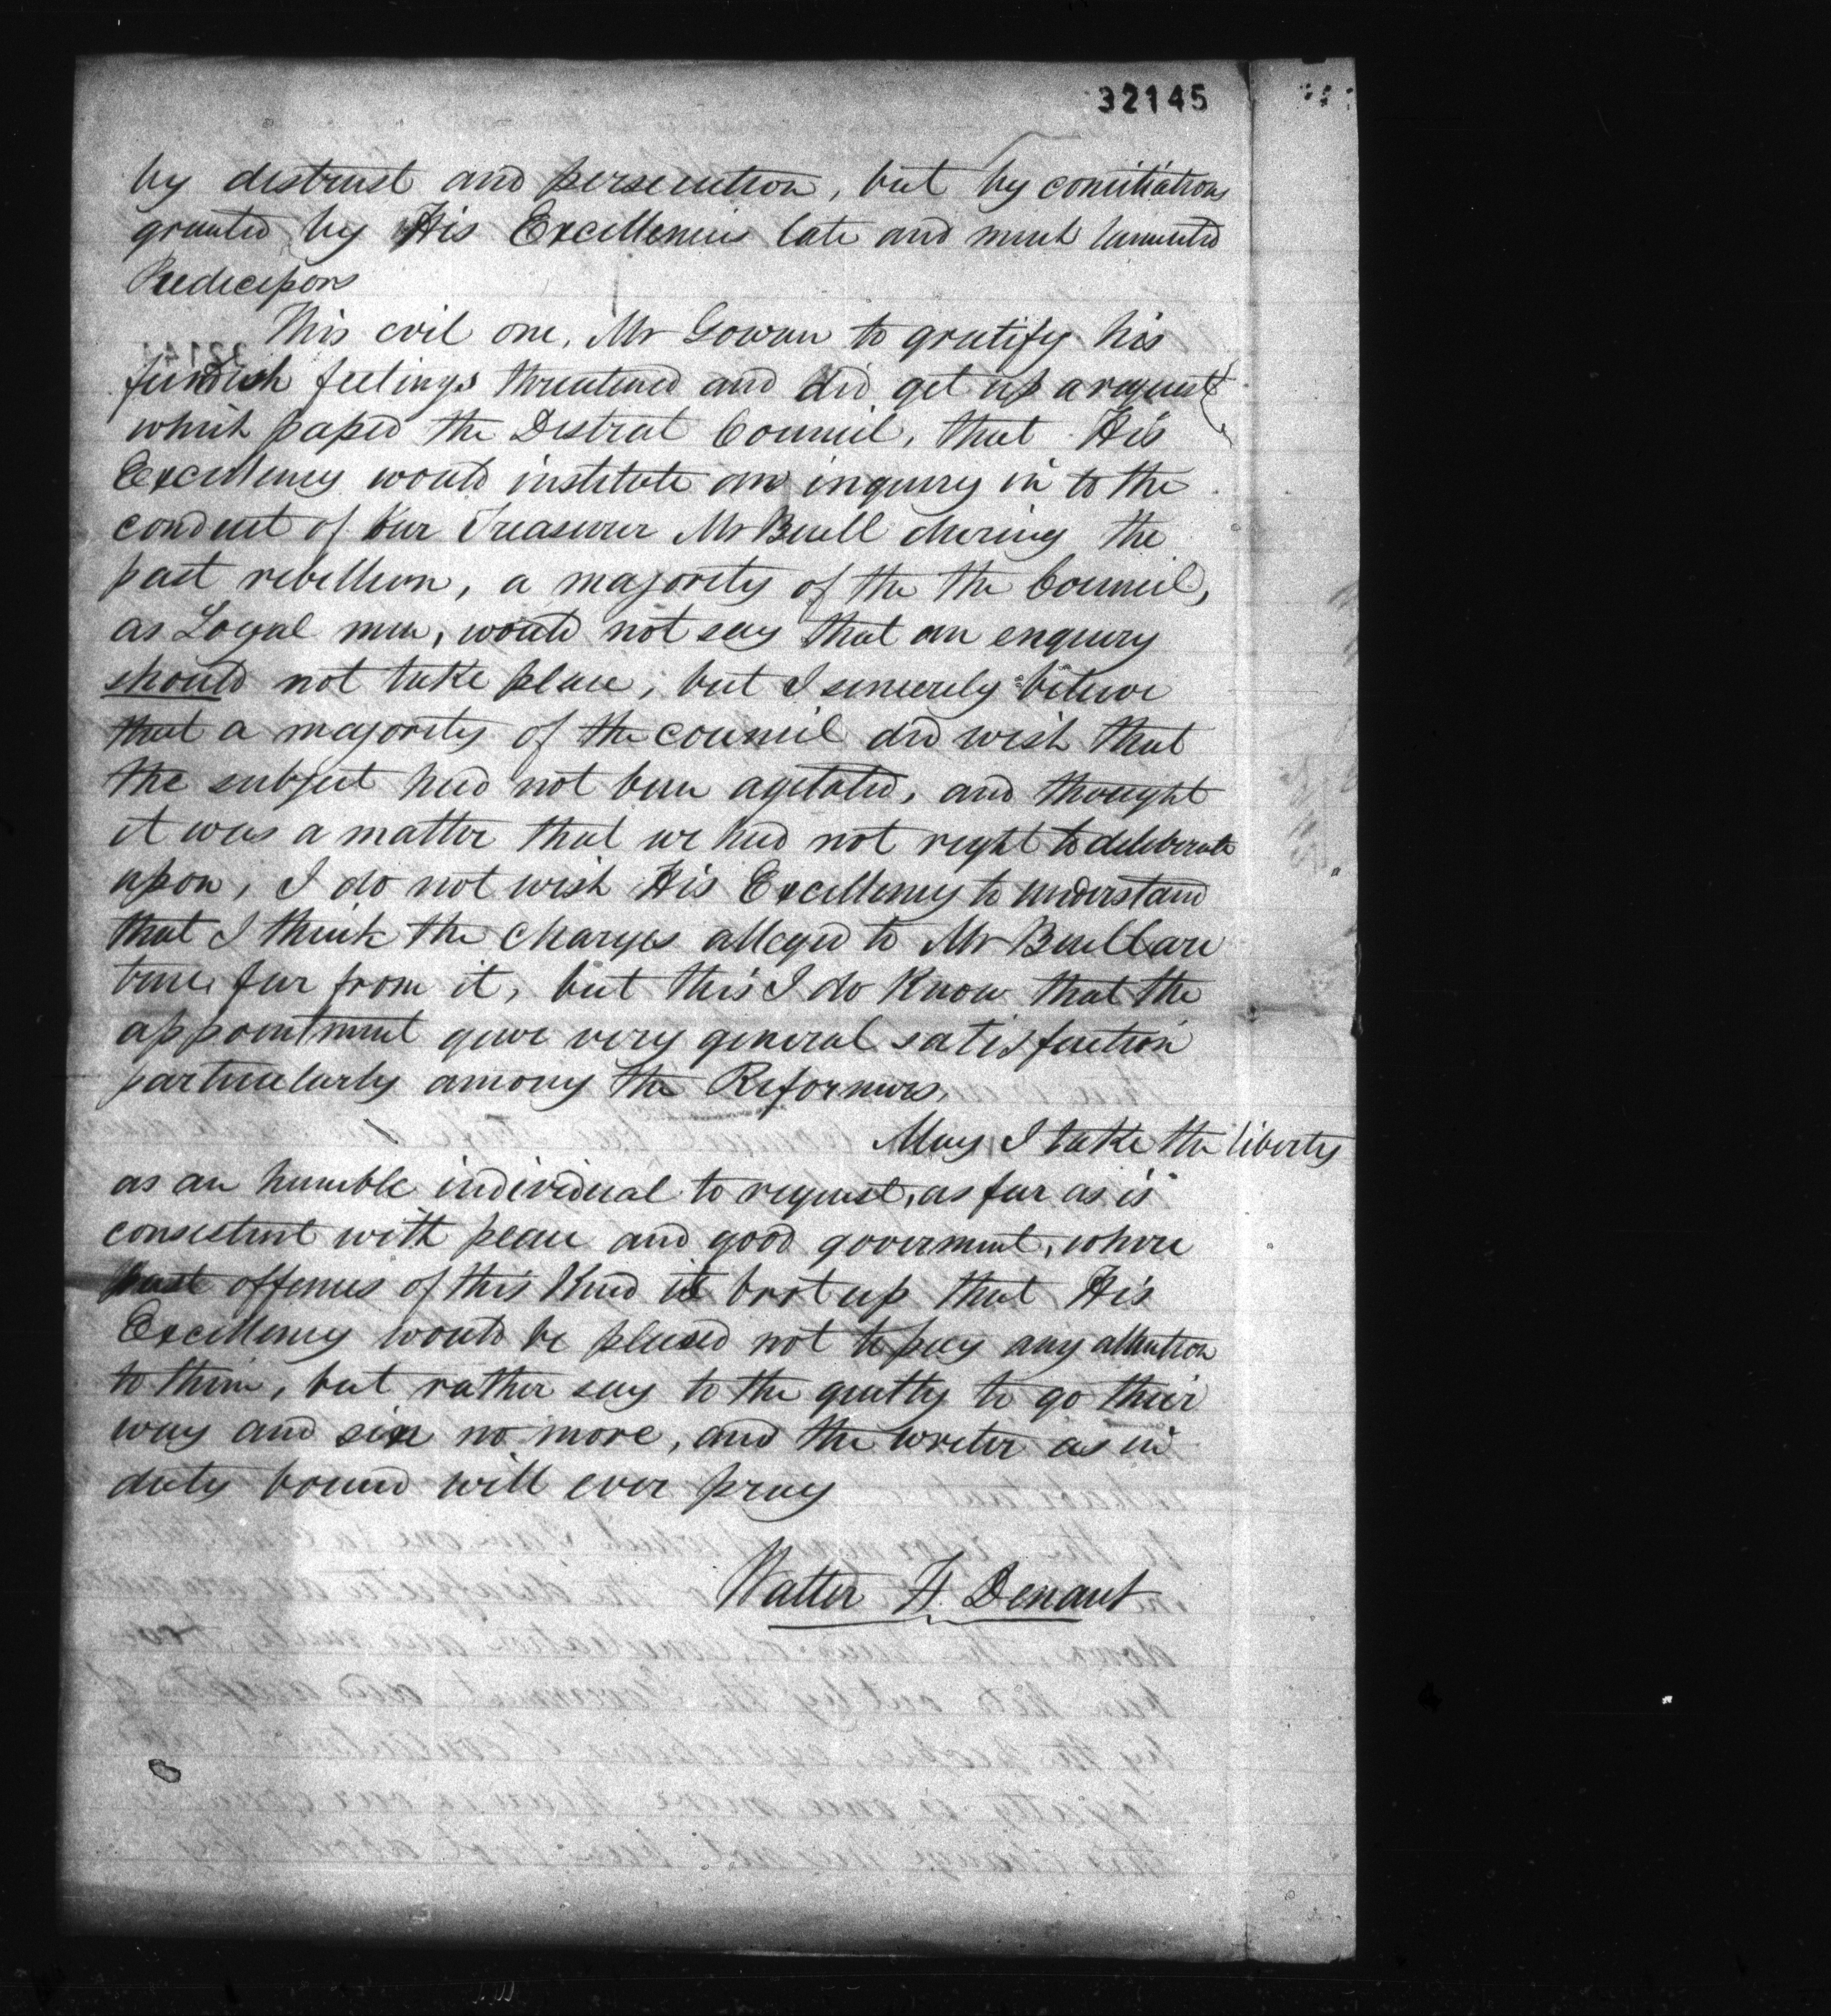 32145
by distrust and persecution, but by conciliations
granted by His Excellencies late and much lamented
Predecessors
This evil one, Mr Gowan to gratify his
fiendish feelings threatened and did get up a request
which passed the District Council, that His
Excellency would institute an inquiry in to the
conduct of our Treasurer Mr Buell during the
past rebellion, a majority of the the Council,
as Loyal men, would not say that an enquiry
should not take place, but I sincerely believe
that a majority of the council did wish that
the subject had not been agitated, and thought
it was a matter that we had not right to deliberate
upon, I do not wish His Excellency to understand
that I think the charges alleged to Mr Buell are
true, far from it, but this I do Know that the
appointment gave very general satisfaction
particularly among the Reformers,
May I take the liberty
as an humble individual to request, as far as is
consistent with peace and good goverment, where
past offences of this Kind is brot up that His
Excellency would be pleased not to pay any attention
to them, but rather say to the guilty to go their
way and sin no more, and the writer as in
duty bound will ever pray
Walter H. Denaut